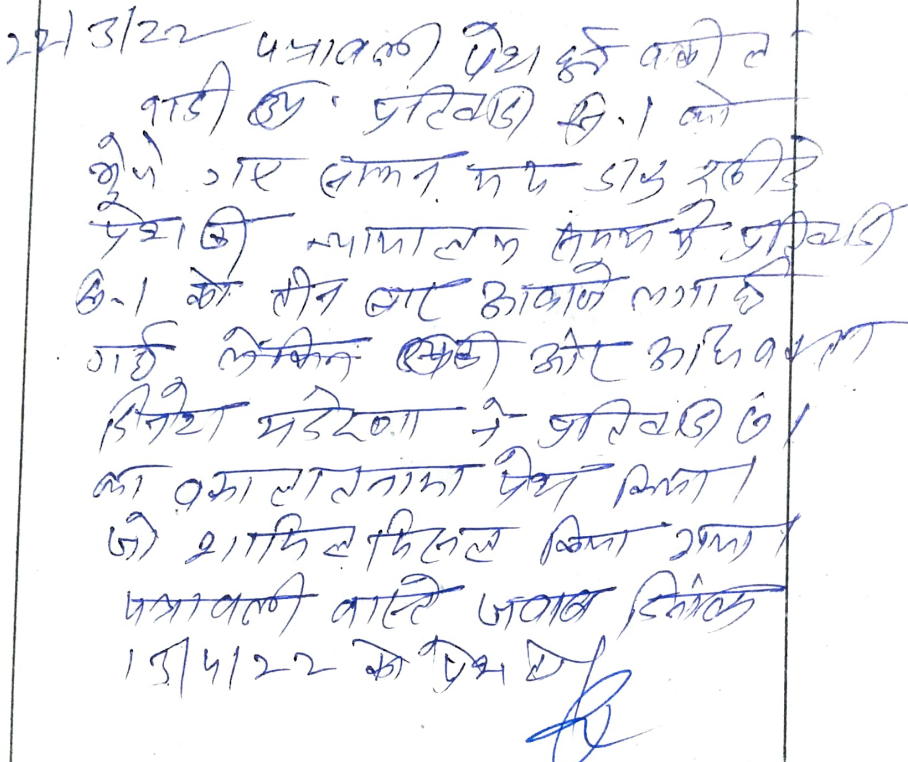 22/3/22 पत्रावली पेश हुई वकील
वादी उप. प्रतिवादी सं.1 को
भेजे गए सामन मय डाक रसीद
पेश की न्यायालय समय में प्रतिवादी
सं.1 को तीन बार आवाजे लगाई
गई लेकिन ओर अधिवक्ता
दिनेश मंडेरणा ने प्रतिवादी सं 1
का वकालतनामा पेश किया।
जो शामिल मिसल किया गया।
पत्रावली वास्ते जवाब दिनांक
13/4/22 को पेश हो